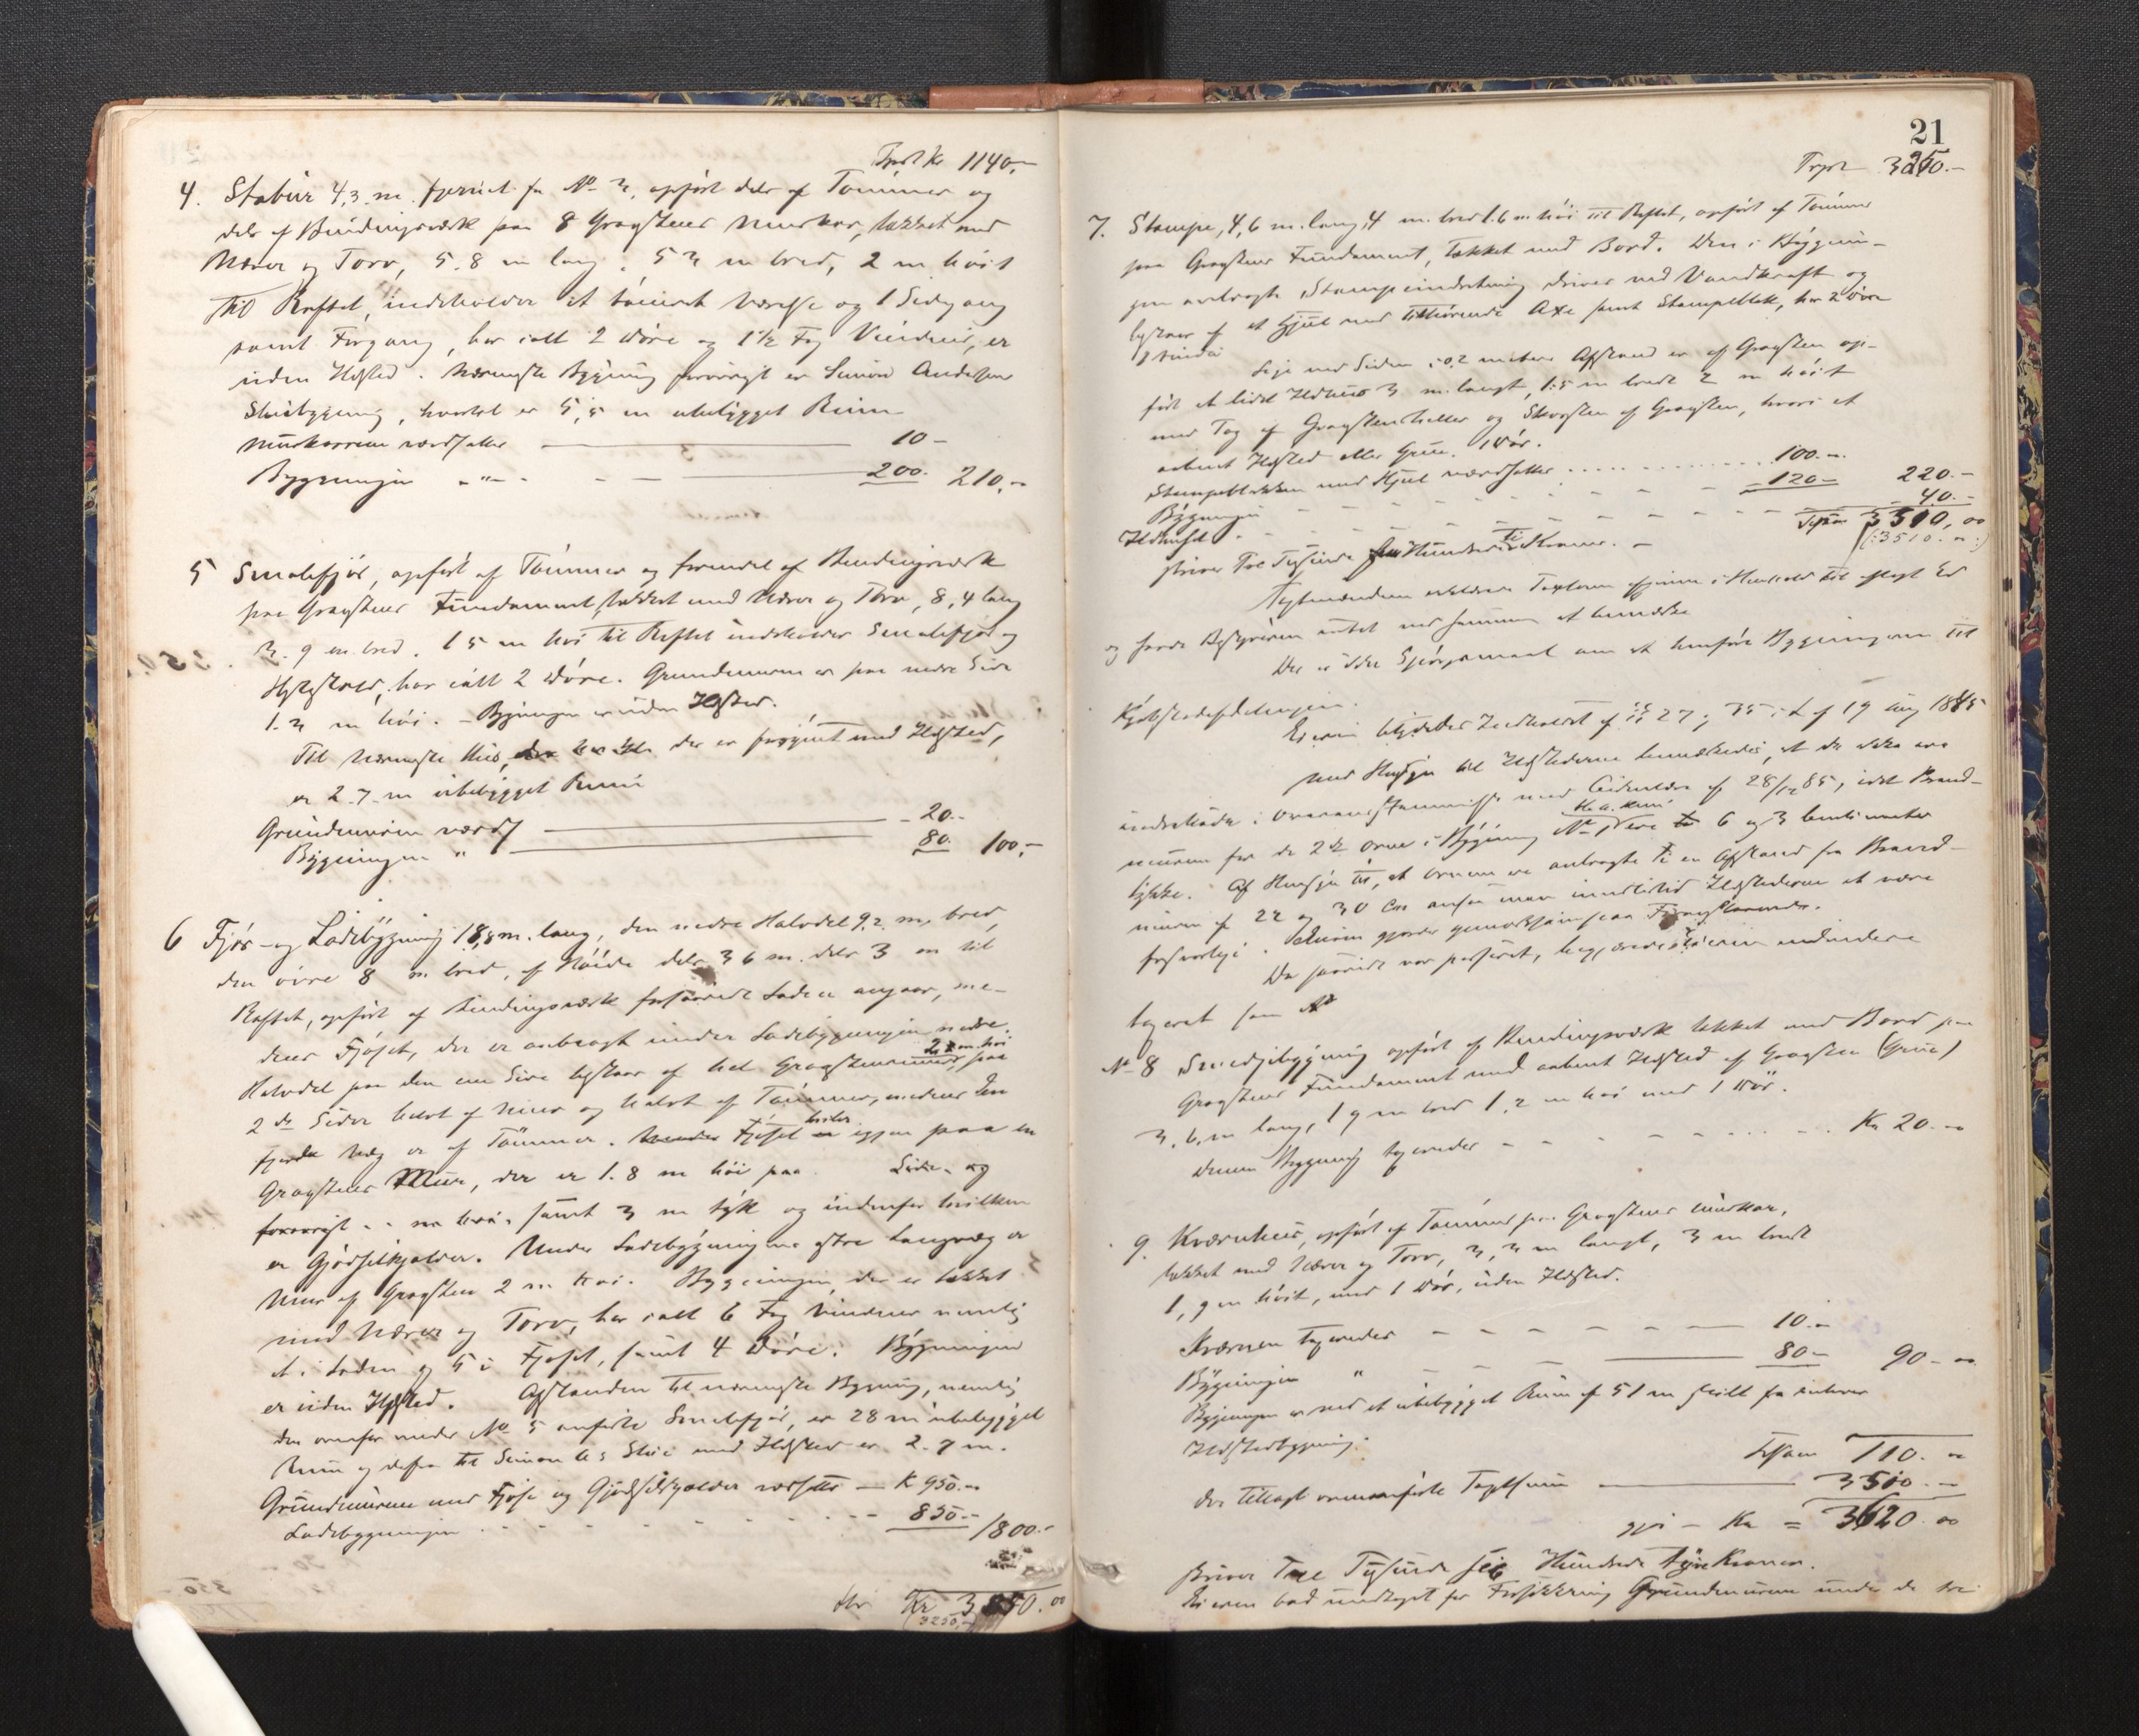 Trpt Kr 1140,-
4. Stabur 4,3 m. fjernet fra No 3, opført dels af Tømmer og
dels af Bindingsværk paa 8 Graastens Murkar, tækket med
Næver og Torv, 5.8 m lang, 5 3 m bred, 2 m høit
til Raftet, indeholder et tømret Værelse og 1 Sidegang
samt Forgang, har ialt 2 Døre og 1½ Fag Vinduer, er
uden Ildsted. Nærmeste Bygning forøvrigt er Simon Andersens
Stuebygning, hvortil er 5,5 m ubebygget Rum
Murkarrene værdsattes 10 -
Bygningen -"- 200. 210,-
5 Smalefjøs, opført af Tømmer og forendel af Bindingsværk
paa Graastens Fundament, tækket med Næver og Torv, 8,4 lang
3.9 m bred. 1 5 m høi til Raftet indeholder Smalefjøs og
har ialt 2 Døre. Grundmuren er paa nedre Side
1.3 m høi. - Bygningen er uden Ildsted.
Til nærmeste Hus, der er forsynet med Ildsted,
er 2.7 m ubebygget Rum
Grundmuren værds 20.-
Bygningen " 80. 100,-
6 Fjøs- og Ladebygning 18,8 m. lang, den nedre Halvdel 9,2 m, bred,
den øvre 8 m bred, af Høide dels 3 6 m. dels 3 m til
Raftet, opført af Bindingsværk forsaavidt Laden angaar, me-
dens Fjøset, der er anbragt under Ladebygningens nedre
Halvdel paa den ene Side bestaar af hel Graastensmur, 2 m høi paa
2de Sider halvt af Mur og halvt af Tømmer, medens den
fjerde Væg er af Tømmer. Fjøset hviler igjen paa en
Graastens Mur, der er 1.8 m høi paa Side og
forøvrigt - - m høi, samt 3 m tyk og indenfor hvilken
er Gjødselkjælder. Under Ladebygningens østre Langvæg er
Mur af Graasten 2 m høi. Bygningen, der er tækket
med Næver og Torv, har ialt 6 Fag Vinduer nemlig
et i Laden og 5 i Fjøset, samt 4 Døre. Bygningen
er uden Ildsted. Afstanden til nærmeste Bygning, nemlig
den ovenfor under No 5 anførte Smalefjøs, er 28 m ubebygget
Rum og derfra til Simon A.s Stue med Ildsted er 2.7 m.
Grundmurene med Fjøs og Gjødselkjælder værdsattes - K 950.-
Ladebygningen - - - 850.- 1800.-
Kr 3250.00
(3250,-)
21
Trpt 3250.-
7. Stampe, 4,6 m. lang, 4 m. bred 1.6 m høi til Raftet, opført af Tømmer
paa Graastens Fundament, tækket med Bord. Den i Bygnin-
gen anbragte Stampeindretning drives ved Vandkraft og
bestaar af et Hjul med tilhørende Axe samt Stampeblok, har 2 Døre
1 Vindu
Lige ved Siden i 0,2 meters Afstand er af Graasten op-
ført et lidet Ildhus 3 m. langt, 1.5 m bredt 2 m høit
med Tag af Graastensheller og Skorsten af Graasten, hvori et
aabent Ildsted eller Grue. 1 Dør.
Stampeblokken med Hjul værdsattes 100.-
Bygningen 120- 220.-
Ildhuset 40.-
Tilsam 3510,00
(:3510.-:)
skriver Tre Tusinde fem Hundrede ti Kroner. -
Taxtmændene erklærede Taxterne afgivne i Henhold til aflagt Ed
og havde Bestyreren intet ved samme at bemærke
Der er ikke Spørgsmaal om at henføre Bygningerne til
Kjøbstadafdelingen.
Eieren betydedes Indholdet af §§ 27 og 35 i L af 19 Aug 1845
Med Hensyn til Ildstederne bemærkedes, at de ikke ere
indrettede i Overensstemmelse med Cirkulære af 28/12 85, idet Brand-
muren for de 2de Ovne i Bygning No 1 ere 6 og 3 Centimeter
tykke. Af Hensyn til, at Ovnene ere anbragte i en Afstand fra Brand-
muren af 22 og 30 Cm anser man imidlertid Ildstederne at være
forsvarlige. Eieren gjordes opmerksom paa
Da saavidt var passeret, begjærede Eieren endvidere
taxeret som
No 8 Smedjebygning opført af Bindingsværk tækket med Bord paa
Graastens Fundament med aabent Ildsted af Graasten (Grue)
3,6 m lang, 1 9 m bred 1,2 m høi med 1 Dør.
Denne Bygning taxeredes - - - Kr 20.-
9. Kværnhus, opført af Tømmer paa Graastens Murkar,
tækket med Næver og Torv, 3,3 m langt, 3 m bredt
1,9 m høit, med 1 Dør, uden Ildsted.
Kværnen taxeredes - - - 10.-
Bygningen " - - - 80- 90-
Bygningen er ved et ubebygget Rum af 51 m skilt fra enhver
Ildstedsbygning.
Tilsam 110.-
der tillagt ovenanførte Taxtsum 3510.-
gjør - Kr = 3620.00
skriver Tre Tusinde sex Hundrede tyve Kroner.
Eieren bad undtaget fra Forsikkring Grundmurene under de tre